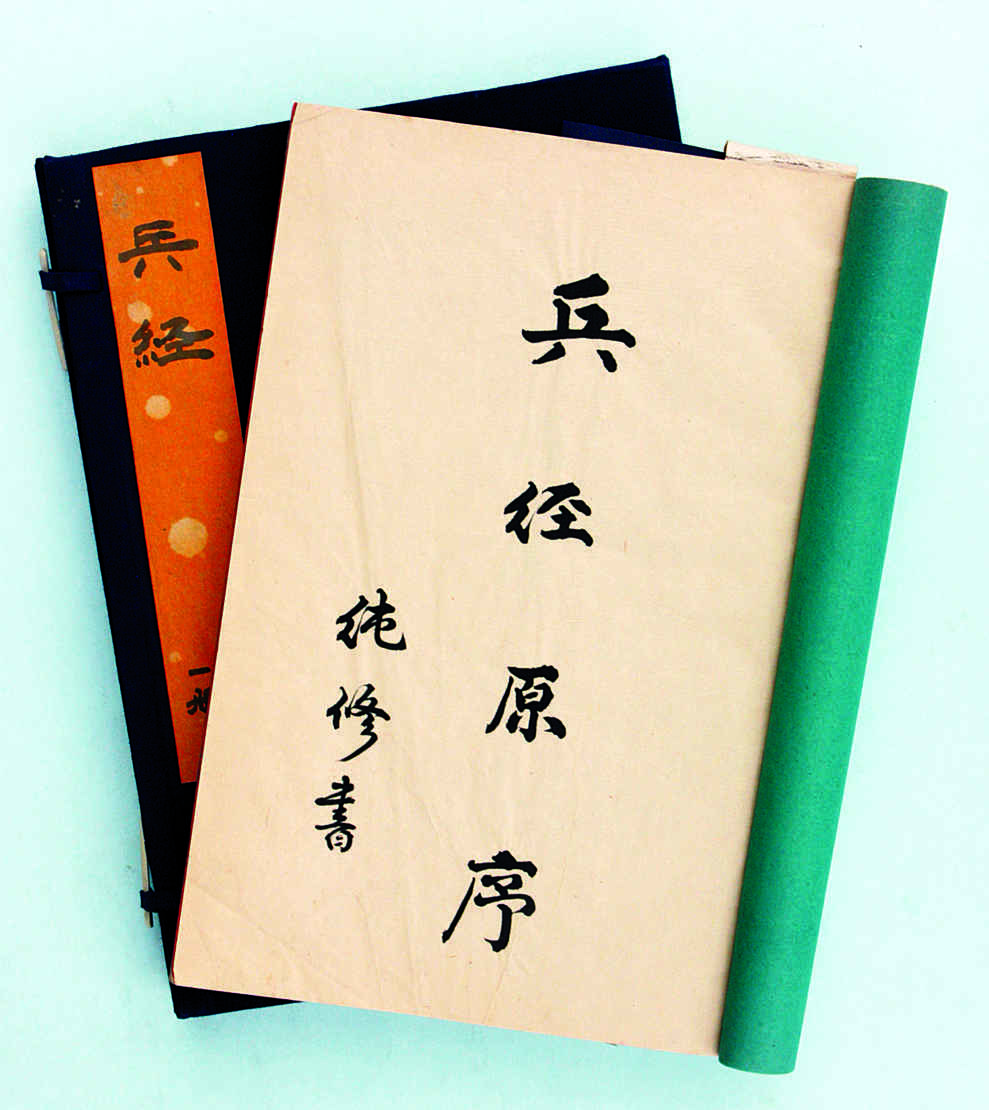 兵经原序
纯修書
兵経
一册